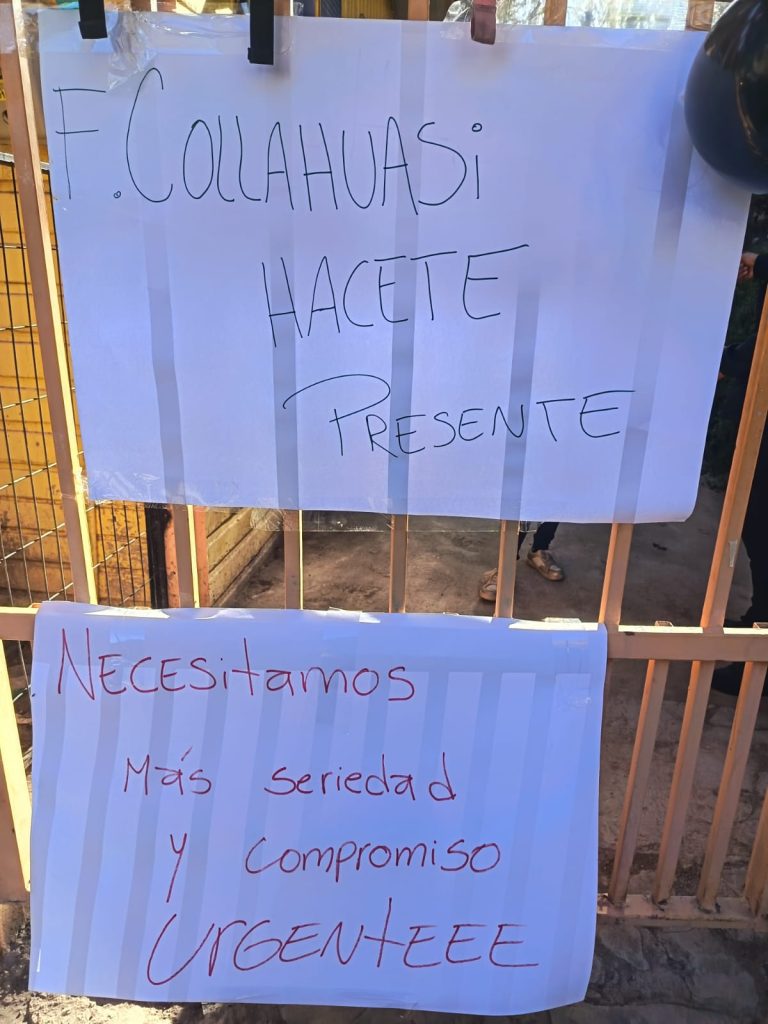 F. COLLAHUASi
HACETE
PRESENTE
NECESitamos
Más seriedad
y compromiso
UrGENtEEE